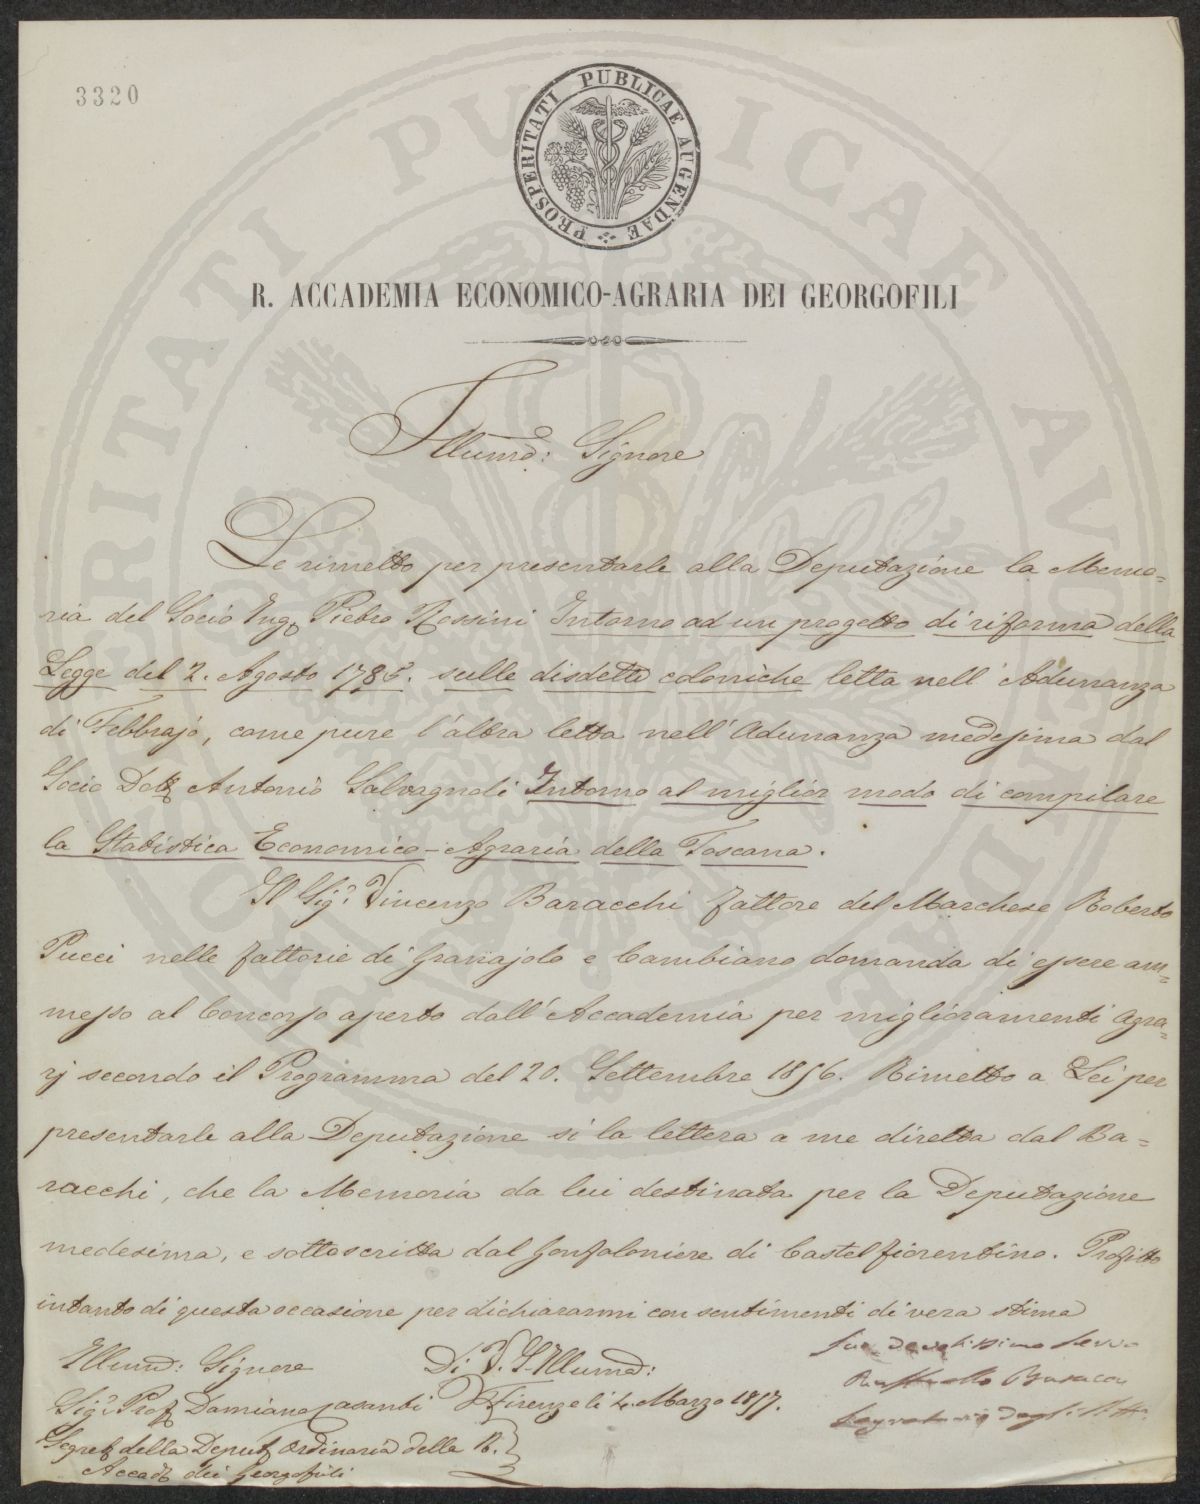 3320
PROSPERITATI PUBLICAE AUGENDAE
R. ACCADEMIA ECONOMICO-AGRARIA DEI GEORGOFILI
Illumo: Signore
Le rimetto per presentarle alla Deputazione la Memo=
ria del Socio Ing. Pietro Rossini Intorno ad un progetto di riforma della
Legge del 2. Agosto 1785. sulle disdette coloniche letta nell' Adunanza
di Febbrajo, come pure l'altra letta nell' Adunanza medesima dal
Socio Dott. Antonio Salvagnoli Intorno al miglior modo di compilare
la Statistica Economico-Agraria della Toscana.
Il Sigr. Vincenzo Baracchi fattore del Marchese Roberto
Pucci nelle fattorie di Granajolo e Cambiano domanda di essere am=
messo al Concorso aperto dall' Accademia per miglioramenti agra=
rj secondo il Programma del 20. Settembre 1856. Rimetto a Lei per
presentarle alla Deputazione sì la lettera a me diretta dal Ba=
racchi, che la Memoria da lui destinata per la Deputazione
medesima, e sottoscritta dal Gonfaloniere di Castel fiorentino. Profitto
intanto di questa occasione per dichiararmi con sentimenti di vera stima
Illumo: Signore
Di V. S. Illuma:
Suo devotissimo Servo
Sigr. Prof. Damiano Casanti
Firenze li 4. Marzo 1857.
Raffaello Busacca
Segretario degli Atti
Segreto della Deput. Ordinaria della R.
Accad. dei Georgofili